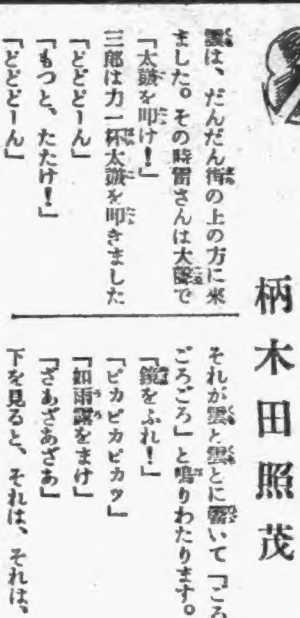 柄木田照茂
雲は、だんだん街の上の方に來
ました。その時雷さんは大聲で
「太皷を叩け！」
三郎は力一杯太皷を叩きました
「どどどーん」
「もつと、たたけ！」
「どどどーん」
それが雲と雲とに響いて「ごろ
ごろごろ」と鳴りわたります。
「鏡をふれ！」
「ピカピカピカッ」
「如雨露をまけ」
「ざあざあざあ」
下を見ると、それは、それは、